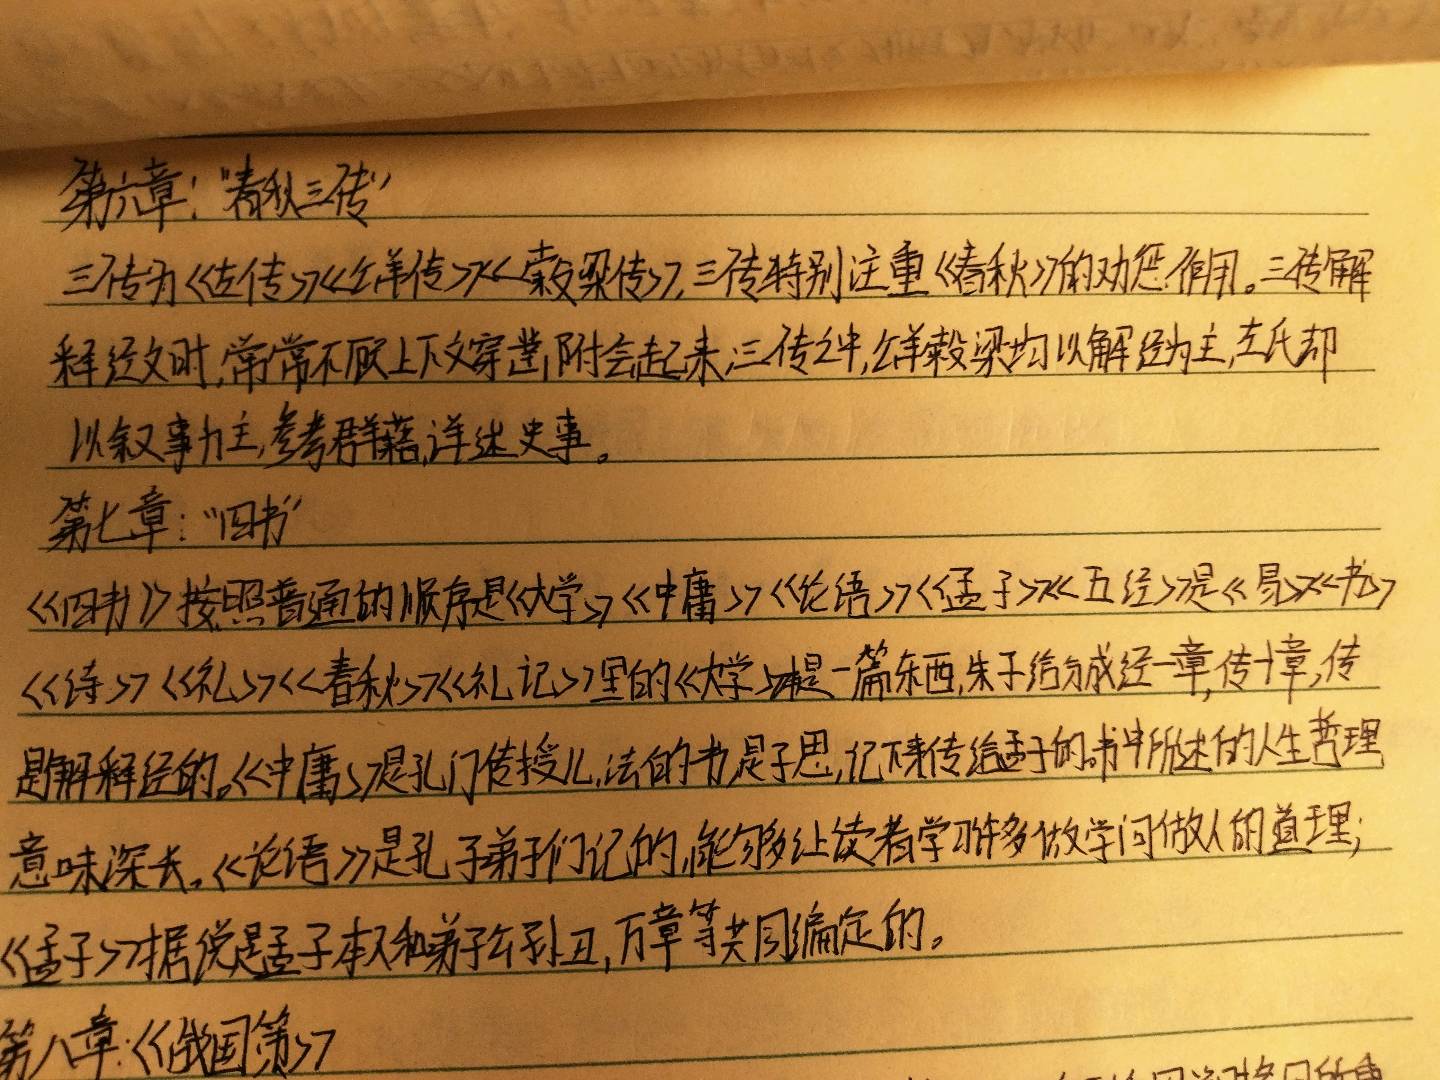 第六章:"春秋三传"
三传为《左传》《公羊传》《穀梁传》,三传特别注重《春秋》的劝惩作用。三传解
释经文时,常常不顾上下文穿凿附会起来,三传之中,公羊穀梁均以解经为主,左氏却
以叙事为主,参考群籍,详述史事。
第七章:"四书"
《四书》按照普通的顺序是《大学》《中庸》《论语》《孟子》《五经》是《易》《书》
《诗》《礼》《春秋》《礼记》里的《大学》本是一篇东西,朱子给分成经一章,传十章,传
是解释经的。《中庸》是孔门传授心法的书,是子思记下来传给孟子的。书中所述的人生哲理
意味深长。《论语》是孔子弟子们记的,能够让读者学习许多做学问做人的道理;
《孟子》据说是孟子本人和弟子公孙丑,万章等共同编定的。
第八章:《战国策》